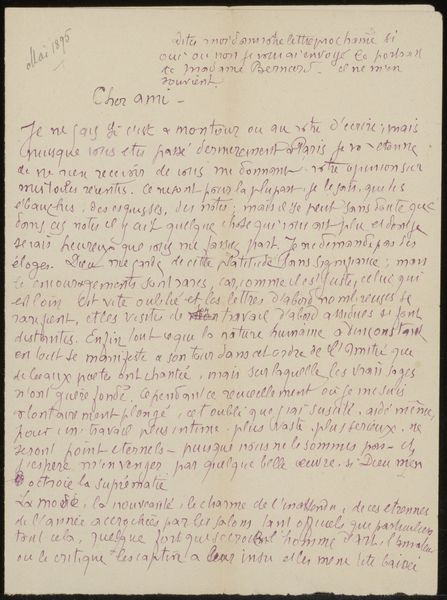 Mai 1895
dites moi dans votre lettre prochaine si
oui ou non je vous ai envoyé le portrait
de Madame Bernard. il ne m'en
souvient
Cher ami -
Je ne sais si c'est a mon tour ou au votre d'écrire; mais
puisque vous etes passé dernierement a Paris je m'etonne
de ne rien recevoir de vous me donnant votre opinion sur
mes toiles recentes. Ce ne sont pour la plupart, je le sais, que des
ébauches, des esquisses, des notes; mais il se peut sans doute que
dans ces notes il y ait quelque chose qui vous ait plu et dont je
serais heureux que vous me fassiez part. Je ne demande pas des
éloges. Dieu me garde de cette platitude sans signifiance; mais
les encouragements sont rares, car, comme il est juste, celui qui
est loin est vite oublié et les lettres d'abord nombreuses se
rarefient, et les visites de travail d'abord assidues se font
distantes. Enfin tout ce que la nature humaine a d'inconstant
en tout se manifeste a son tour dans cet ordre de l'Amitié que
de beaux poetes ont chantée, mais sur laquelle les vrais sages
n'ont guère fondé. Cependant ce recueillement où je me suis
volontairement plongé, cet oubli que j'ai suscité, aidé même,
pour un travail plus intime, plus vaste, plus serieux, ne
seront point eternels - puisque nous ne le sommes pas - et
j'espere m'en venger par quelque belle œuvre, si Dieu m'en
octroie la suprématie
La mode, la nouveauté, le charme de l'inattendu, de ces etrennes
de l'année accrochées par les salons tant officiels que particuliers
tout cela, quelque fort que soit homme d'art, l'amateur
ou le critique les captive a leur insu et les mene